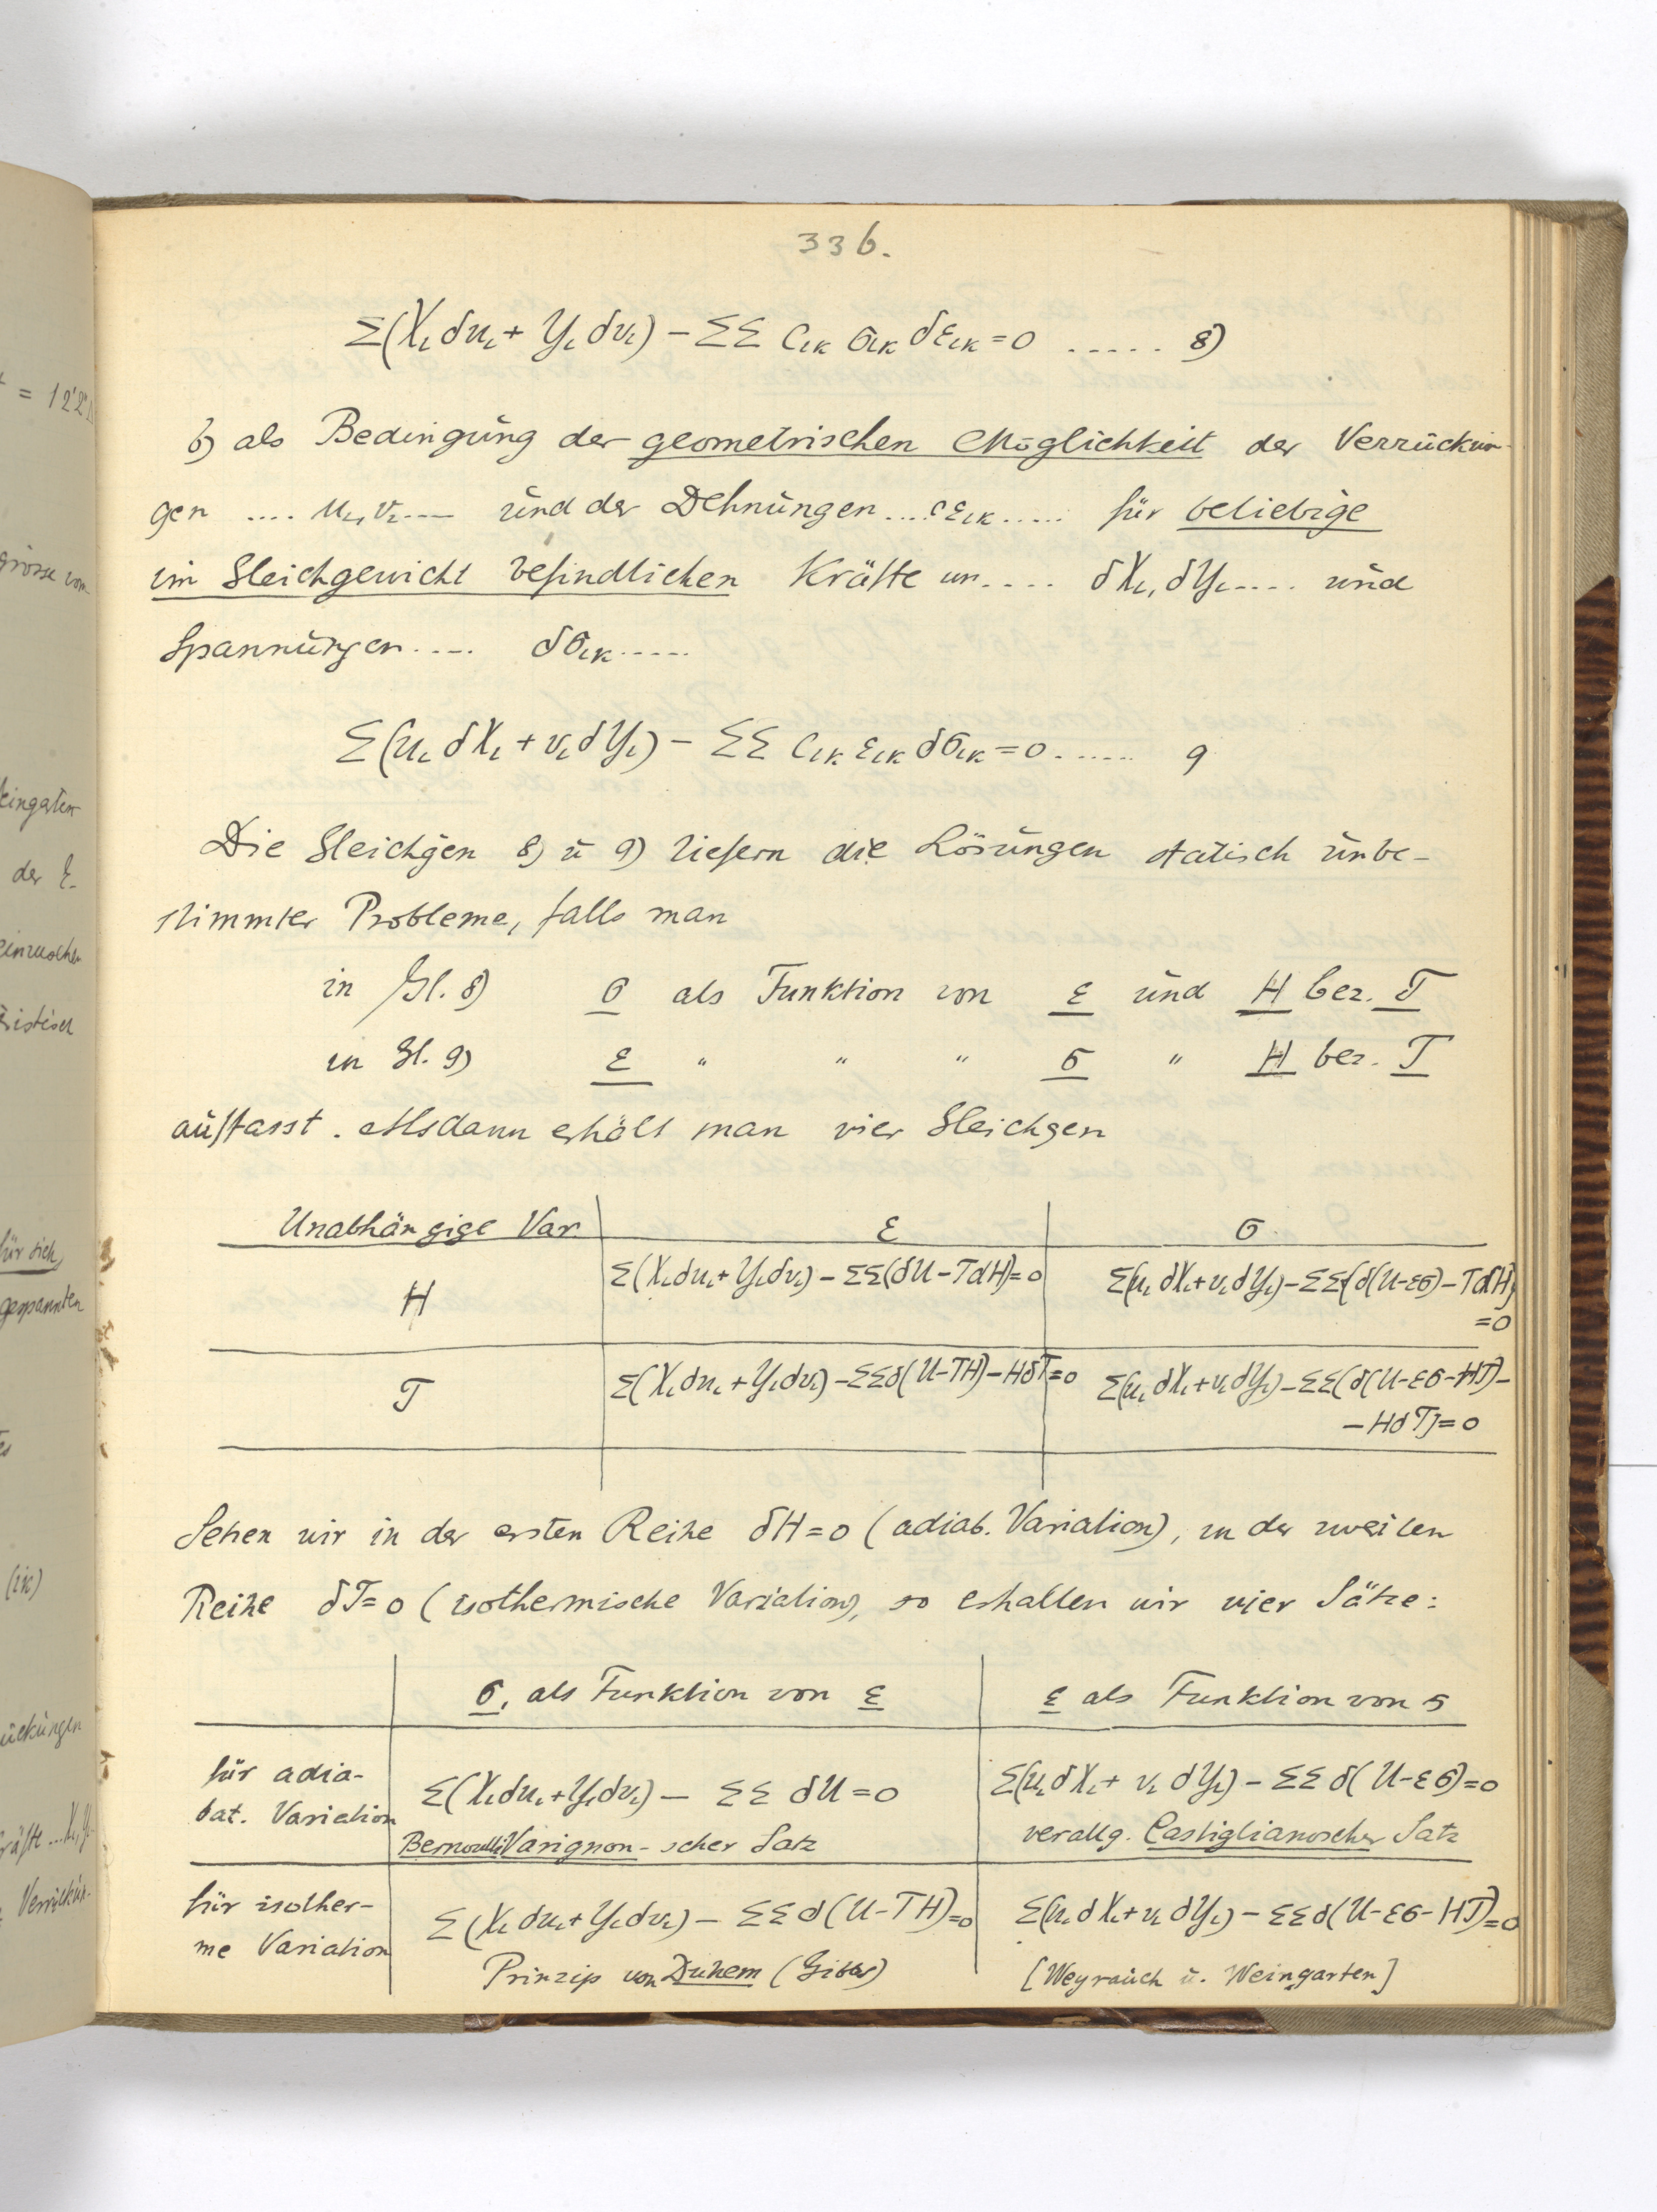 = 12'2"
grösse vom
der E-
für sich
gespannten
(ik)
336.
Σ(Xᵢ δuᵢ + Yᵢ δvᵢ) – ΣΣ cᵢₖ σᵢₖ δεᵢₖ = 0 ..... 8)
b) als Bedingung der geometrischen Möglichkeit der Verrückun-
gen .... uᵢ, vᵢ .... und der Dehnungen .... εᵢₖ ..... für beliebige
im Gleichgewicht befindlichen Kräfte un.... δXᵢ, δYᵢ .... und
Spannungen .... δσᵢₖ .....
Σ(uᵢ δXᵢ + vᵢ δYᵢ) – ΣΣ cᵢₖ εᵢₖ δσᵢₖ = 0 ...... 9
Die Gleichgen 8) u 9) liefern die Lösungen statisch unbe-
stimmter Probleme, falls man
in Gl. 8) σ als Funktion von ε und H bez. T
in Gl. 9) ε " " " σ " H bez. T
auffasst. Alsdann erhält man vier Gleichgen
Unabhängige Var. ε σ
H Σ(Xᵢδuᵢ + Yᵢδvᵢ) – ΣΣ(δU – TδH) = 0 Σ(uᵢ δXᵢ + vᵢ δYᵢ) – ΣΣ{δ(U-εσ) – TδH}
= 0
T Σ(Xᵢδuᵢ + Yᵢδvᵢ) – ΣΣδ(U-TH) – HδT = 0 Σ(uᵢ δXᵢ + vᵢδYᵢ) – ΣΣ(δ(U-εσ-HT) –
– HδT) = 0
Setzen wir in der ersten Reihe δH = 0 (adiab. Variation), in der zweiten
Reihe δT = 0 (isothermische Variation), so erhalten wir vier Sätze:
σ, als Funktion von ε ε als Funktion von σ
für adia-
bat. Variation Σ(Xᵢδuᵢ + Yᵢδvᵢ) – ΣΣ δU = 0 Σ(uᵢ δXᵢ + vᵢ δYᵢ) – ΣΣ δ(U-εσ) = 0
Bernoulli Varignon-scher Satz verallg. Castiglianoscher Satz
für isother-
me Variation Σ(Xᵢ δuᵢ + Yᵢδvᵢ) – ΣΣ δ(U-TH) = 0 Σ(uᵢ δXᵢ + vᵢ δYᵢ) – ΣΣδ(U-εσ-HT) = 0
Prinzip von Duhem (Gibbs) [Weyrauch u. Weingarten]